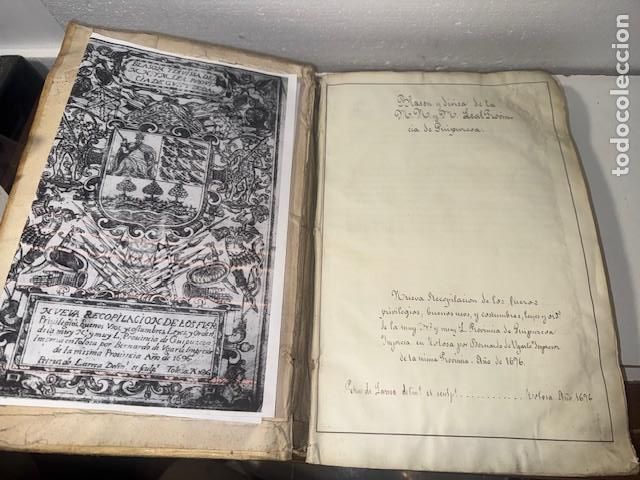 NVEVA RECOPILACION DE LOS FVEROS
Privilegios, buenos Vsos, y costumbres, Leyes, y Orde
de la muy N. y muy L. Provincia de Guipuzcoa
Impressa en Tolosa por Bernardo de Vgarte Impressor
de la misma Provincia Año de 1696
Petrus de Larrea Delin. et sculp. Tolosæ A 1696
Blason y divisa de la
M. N. y M. Leal Provin-
cia de Guipuzcoa.
Nueva Recopilacion de los fueros
privilegios, buenos usos, y costumbres, leyes y ord.s
de la muy N. y muy L. Provincia de Guipuzcoa
Impresa en Tolosa por Bernardo de Ugarte Impresor
de la misma Provincia. Año de 1696.
de Larrea delin.t et sculp.t . . . . . . . . . . Tolosa Año 1696
todocoleccion